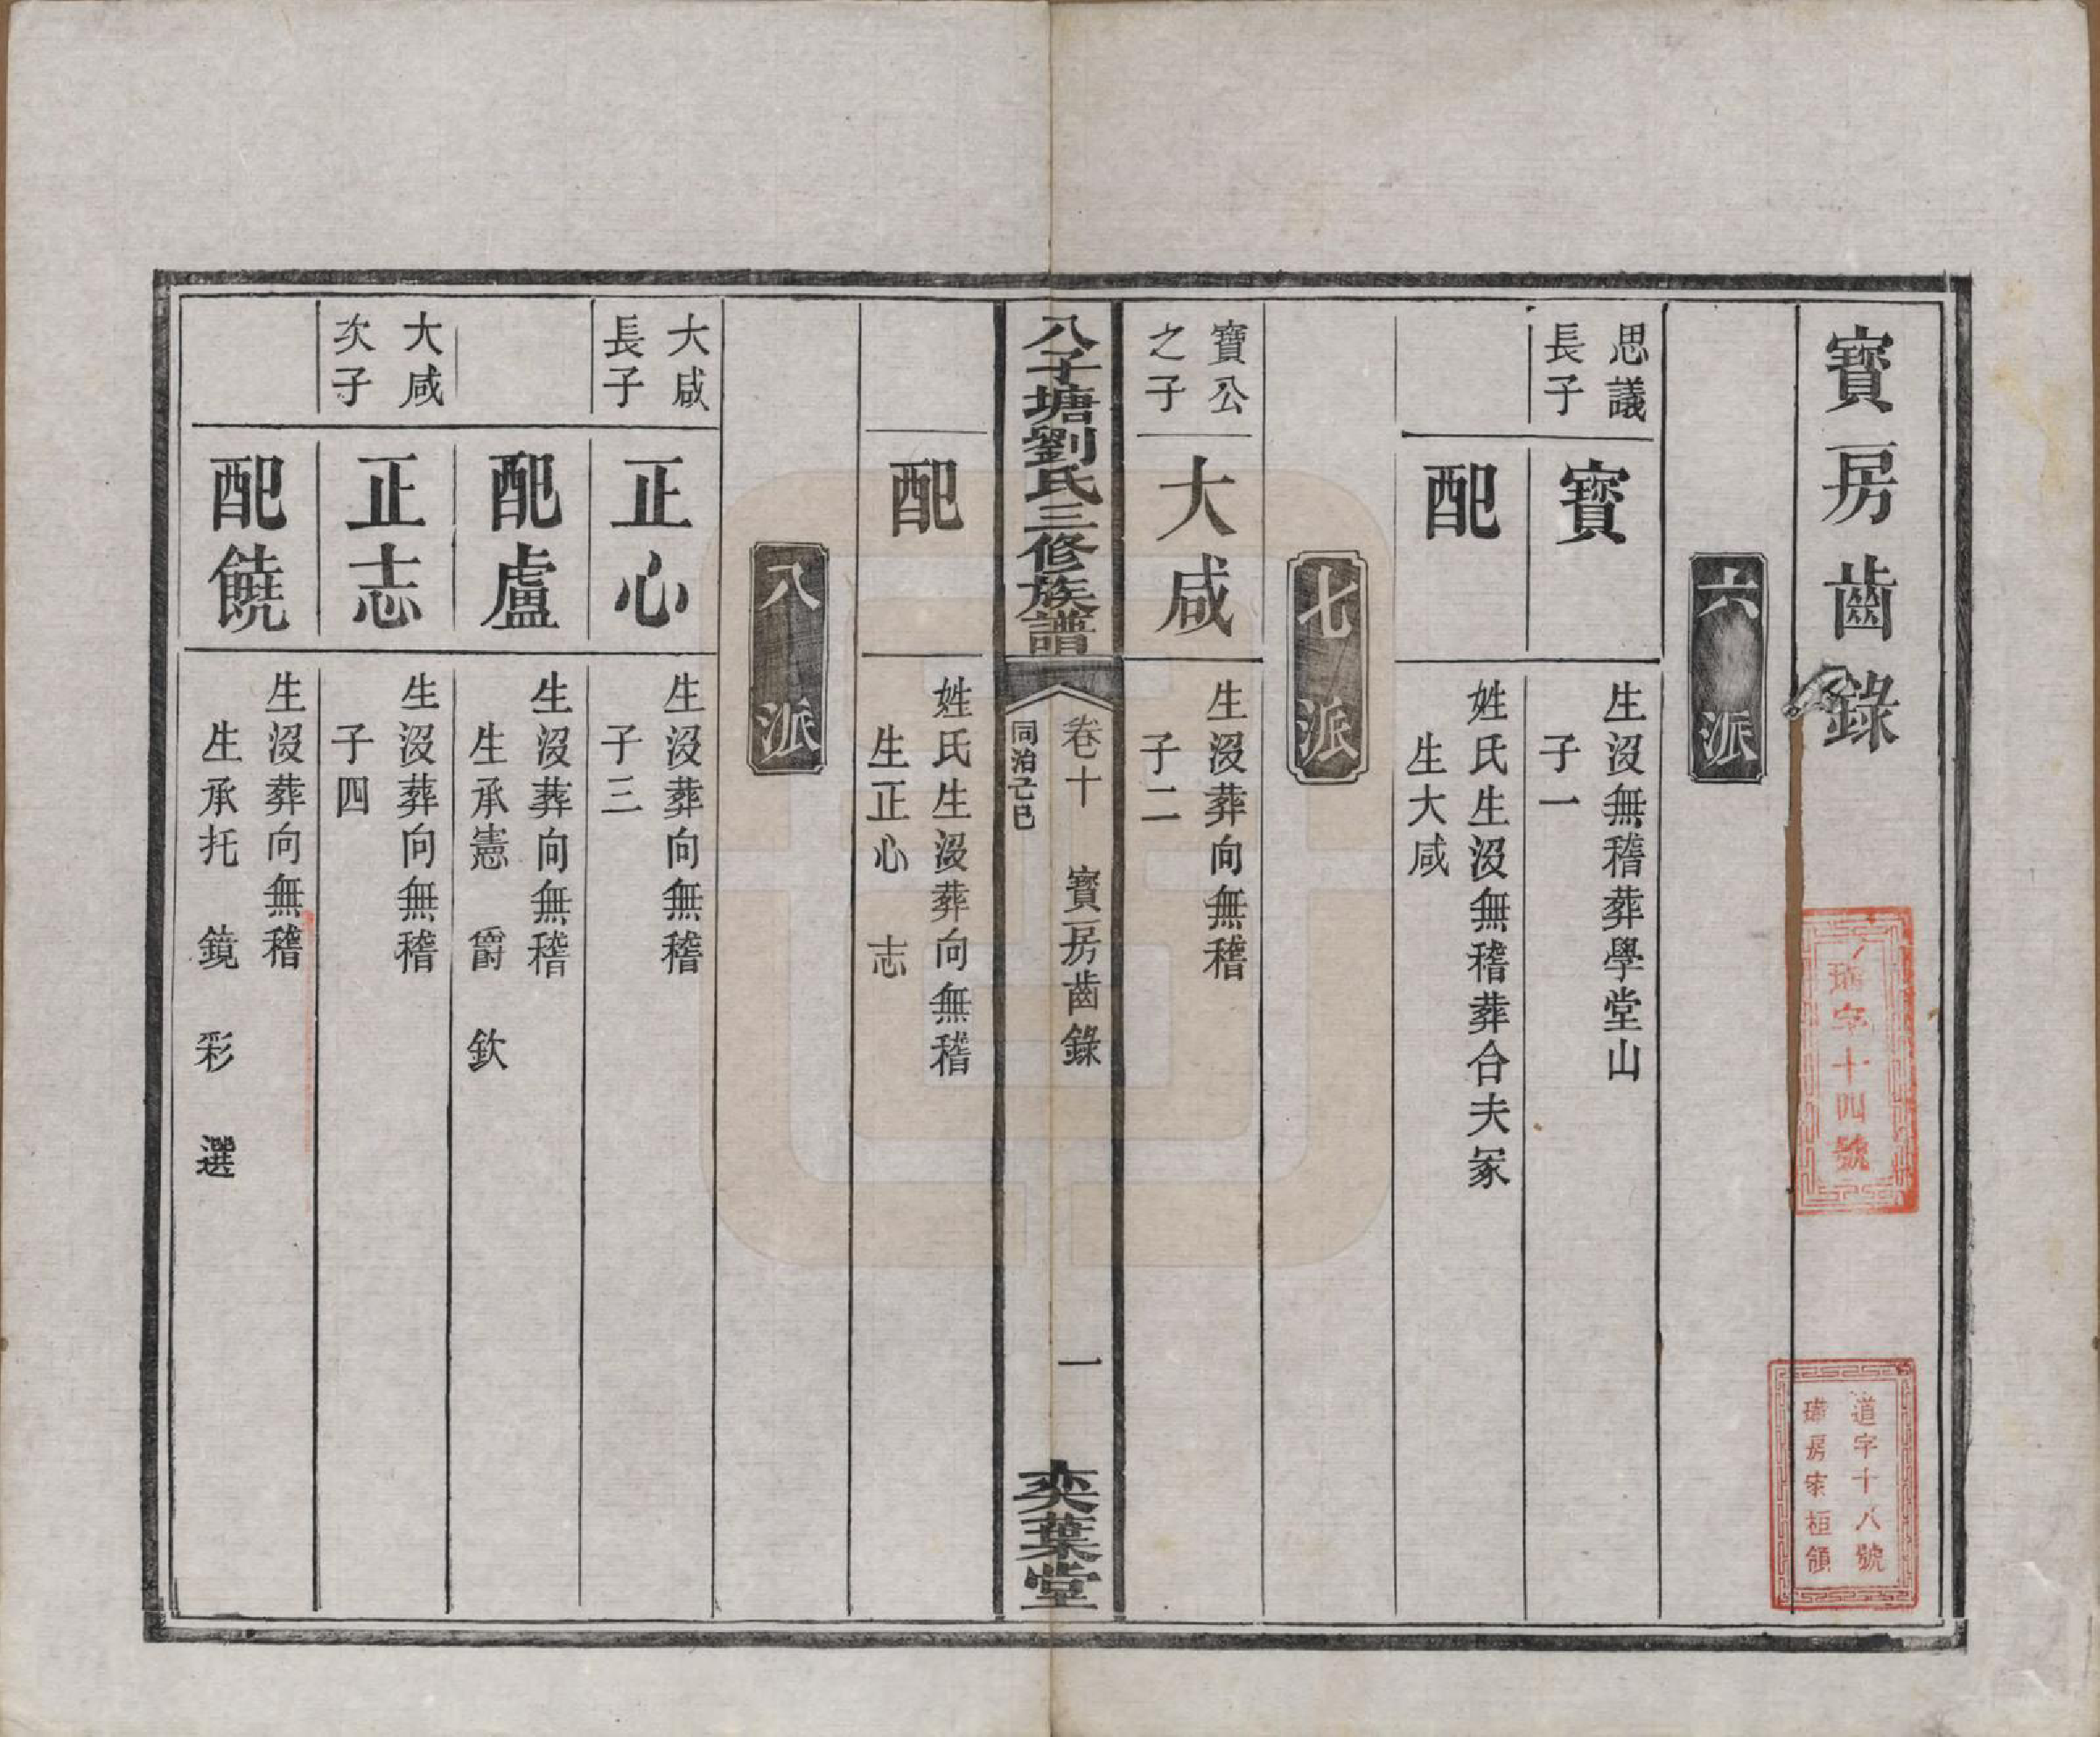 寶房齒錄
六派
思議
長子
寶
生沒無稽葬學堂山
子一
配
姓氏生沒無稽葬合夫冢
生大咸
七派
寶公
之子
大咸
生沒葬向無稽
子二
八子塘劉氏三修族譜
卷十　寶房齒錄
同治己巳
一
奕葉堂
配
姓氏生沒葬向無稽
生正心　志
八派
大咸
長子
正心
生沒葬向無稽
子三
配盧
生沒葬向無稽
生承憲　爵　欽
大咸
次子
正志
生沒葬向無稽
子四
配饒
生沒葬向無稽
生承托　鏡　彩　選
字十四號
道字十八號
房家桓領